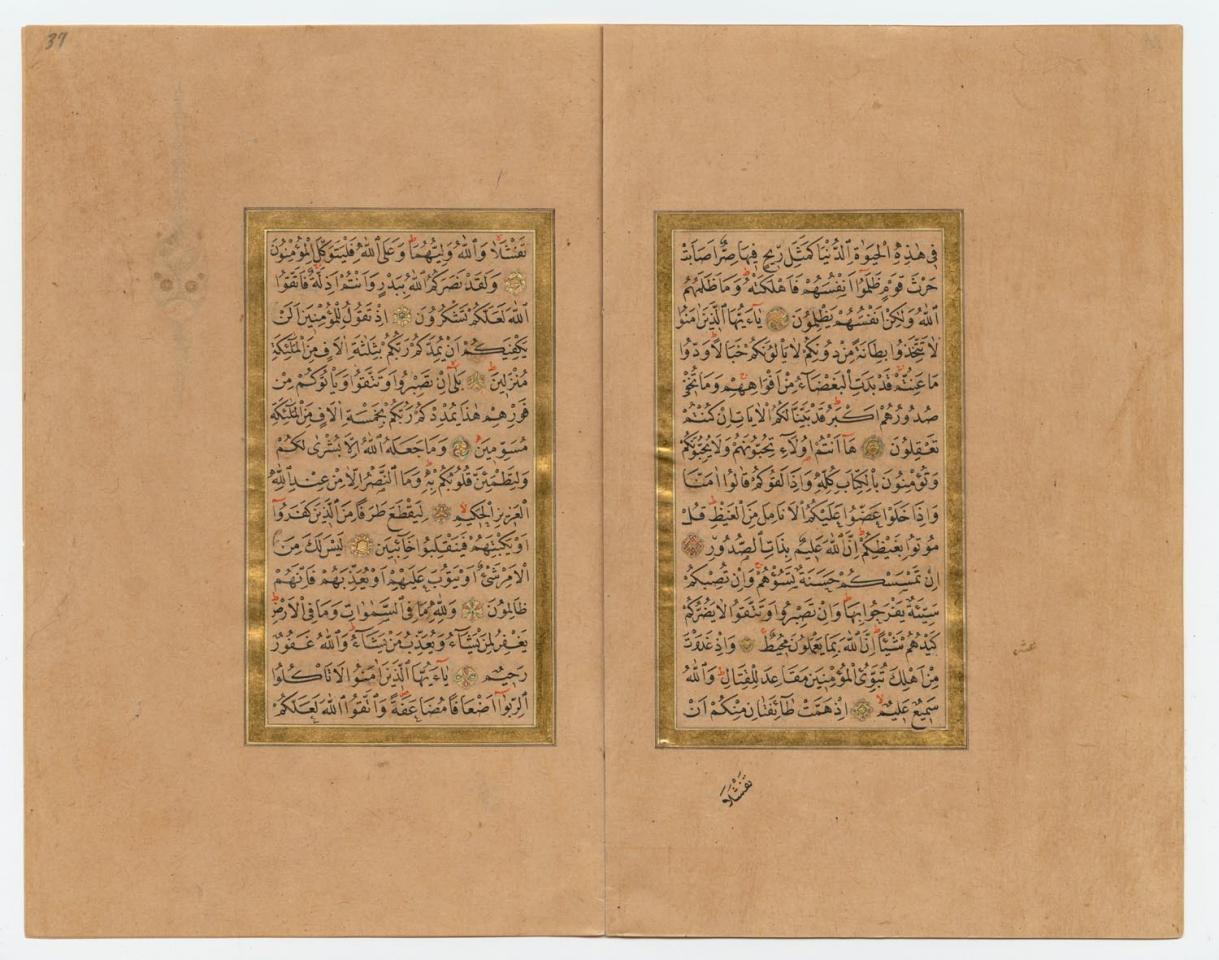 فِى هٰذِهِ الْحَيٰوةِ الدُّنْيَا كَمَثَلِ رِيحٍ فِيهَا صِرٌّ اَصَابَتْ
حَرْثَ قَوْمٍ ظَلَمُوا اَنْفُسَهُمْ فَاَهْلَكَتْهُ وَمَا ظَلَمَهُمُ
اللّٰهُ وَلٰكِنْ اَنْفُسَهُمْ يَظْلِمُونَ يَآءَيُّهَا الَّذِينَ اٰمَنُوا
لَا تَتَّخِذُوا بِطَانَةً مِنْ دُونِكُمْ لَا يَأْلُونَكُمْ خَبَالًا وَدُّوا
مَا عَنِتُّمْ قَدْ بَدَتِ الْبَغْضَآءُ مِنْ اَفْوَاهِهِمْ وَمَا تُخْفِى
صُدُورُهُمْ اَكْبَرُ قَدْ بَيَّنَّا لَكُمُ الْاٰيَاتِ اِنْ كُنْتُمْ
تَعْقِلُونَ هَآ اَنْتُمْ اُولَآءِ تُحِبُّونَهُمْ وَلَا يُحِبُّونَكُمْ
وَتُؤْمِنُونَ بِالْكِتَابِ كُلِّهِ وَاِذَا لَقُوكُمْ قَالُوا اٰمَنَّا
وَاِذَا خَلَوْا عَضُّوا عَلَيْكُمُ الْاَنَامِلَ مِنَ الْغَيْظِ قُلْ
مُوتُوا بِغَيْظِكُمْ اِنَّ اللّٰهَ عَلِيمٌ بِذَاتِ الصُّدُورِ
اِنْ تَمْسَسْكُمْ حَسَنَةٌ تَسُؤْهُمْ وَاِنْ تُصِبْكُمْ
سَيِّئَةٌ يَفْرَحُوا بِهَا وَاِنْ تَصْبِرُوا وَتَتَّقُوا لَا يَضُرُّكُمْ
كَيْدُهُمْ شَيْئًا اِنَّ اللّٰهَ بِمَا يَعْمَلُونَ مُحِيطٌ وَاِذْ غَدَوْتَ
مِنْ اَهْلِكَ تُبَوِّئُ الْمُؤْمِنِينَ مَقَاعِدَ لِلْقِتَالِ وَاللّٰهُ
سَمِيعٌ عَلِيمٌ اِذْ هَمَّتْ طَآئِفَتَانِ مِنْكُمْ اَنْ
تَفْشَلَا
37
تَفْشَلَا وَاللّٰهُ وَلِيُّهُمَا وَعَلَى اللّٰهِ فَلْيَتَوَكَّلِ الْمُؤْمِنُونَ
وَلَقَدْ نَصَرَكُمُ اللّٰهُ بِبَدْرٍ وَاَنْتُمْ اَذِلَّةٌ فَاتَّقُوا
اللّٰهَ لَعَلَّكُمْ تَشْكُرُونَ اِذْ تَقُولُ لِلْمُؤْمِنِينَ اَلَنْ
يَكْفِيَكُمْ اَنْ يُمِدَّكُمْ رَبُّكُمْ بِثَلٰثَةِ اٰلَافٍ مِنَ الْمَلٰٓئِكَةِ
مُنْزَلِينَ بَلٰٓى اِنْ تَصْبِرُوا وَتَتَّقُوا وَيَأْتُوكُمْ مِنْ
فَوْرِهِمْ هٰذَا يُمْدِدْكُمْ رَبُّكُمْ بِخَمْسَةِ اٰلَافٍ مِنَ الْمَلٰٓئِكَةِ
مُسَوِّمِينَ وَمَا جَعَلَهُ اللّٰهُ اِلَّا بُشْرٰى لَكُمْ
وَلِتَطْمَئِنَّ قُلُوبُكُمْ بِهِ وَمَا النَّصْرُ اِلَّا مِنْ عِنْدِ اللّٰهِ
الْعَزِيزِ الْحَكِيمِ لِيَقْطَعَ طَرَفًا مِنَ الَّذِينَ كَفَرُوٓا
اَوْ يَكْبِتَهُمْ فَيَنْقَلِبُوا خَآئِبِينَ لَيْسَ لَكَ مِنَ
الْاَمْرِ شَىْءٌ اَوْ يَتُوبَ عَلَيْهِمْ اَوْ يُعَذِّبَهُمْ فَاِنَّهُمْ
ظَالِمُونَ وَلِلّٰهِ مَا فِى السَّمٰوَاتِ وَمَا فِى الْاَرْضِ
يَغْفِرُ لِمَنْ يَشَآءُ وَيُعَذِّبُ مَنْ يَشَآءُ وَاللّٰهُ غَفُورٌ
رَحِيمٌ يَآءَيُّهَا الَّذِينَ اٰمَنُوا لَا تَأْكُلُوا
الرِّبٰوٓا اَضْعَافًا مُضَاعَفَةً وَاتَّقُوا اللّٰهَ لَعَلَّكُمْ